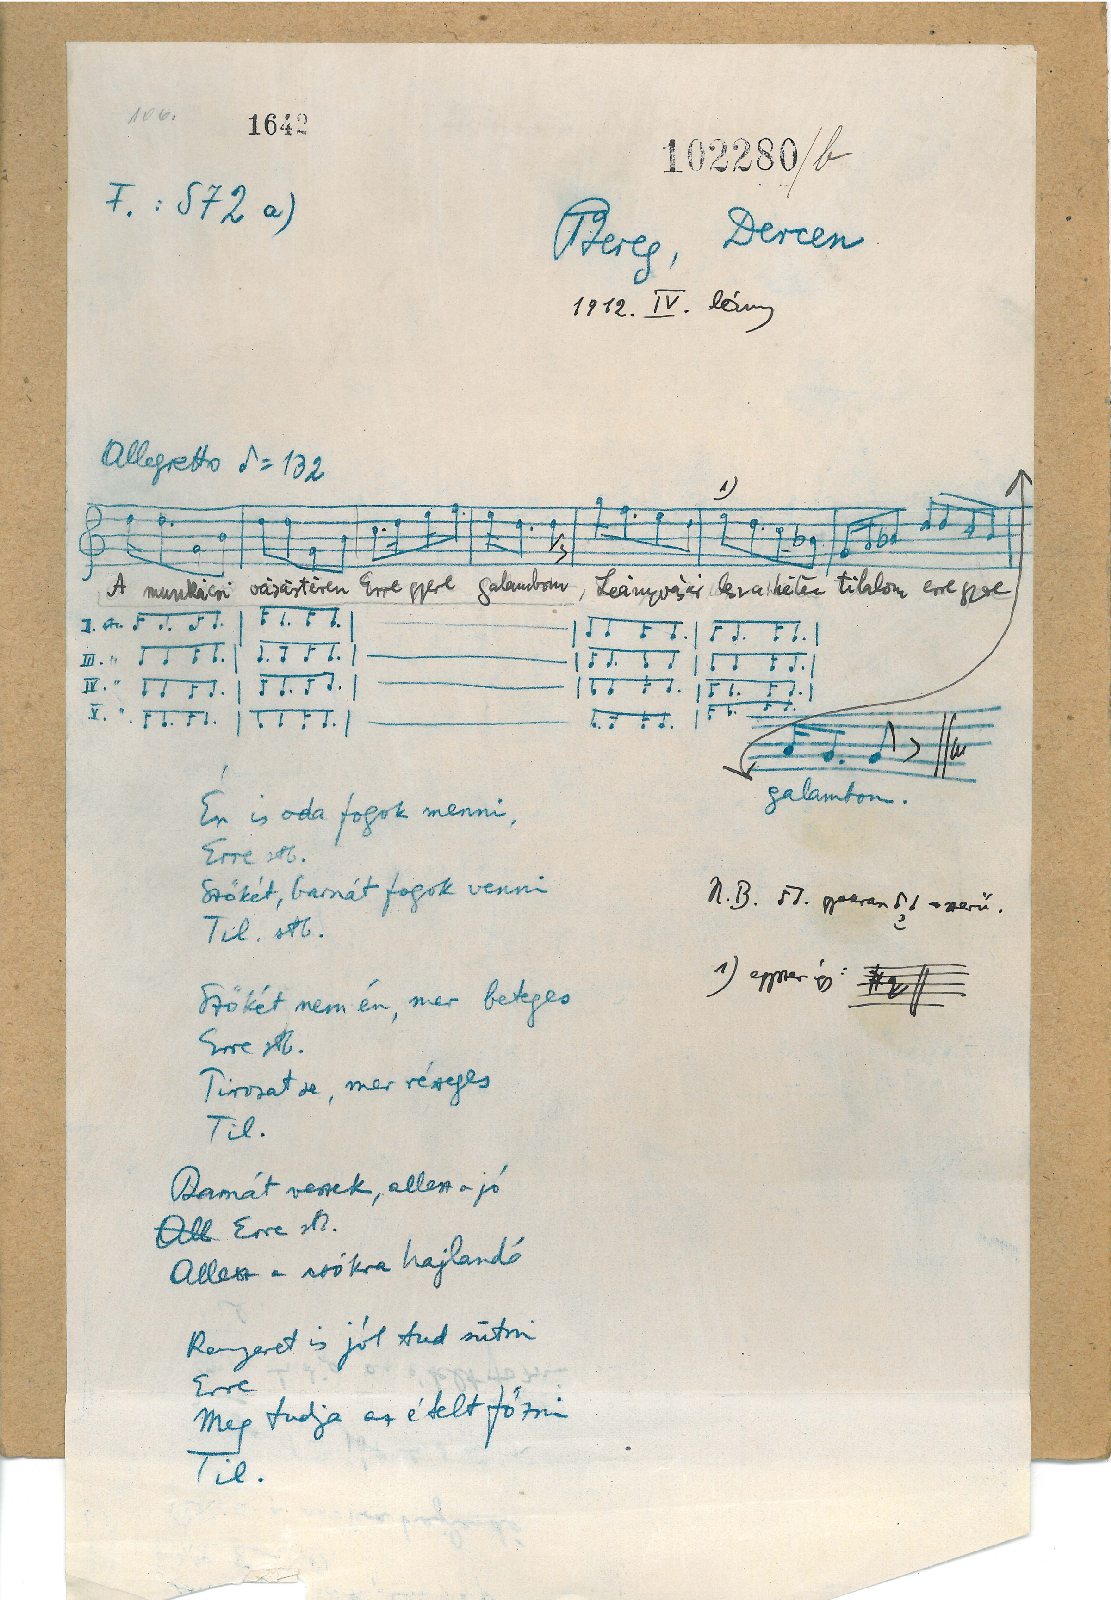 106.
1642
102280/b
F. : 572 a)
Bereg, Dercen
1912. IV. leány
Allegretto ♪ = 132
1)
A munkácsi vásártéren Erre gyere galambom, Leányvásár lesz a héten tilalom erre gyere
II.
III. "
IV. "
V. "
galambom.
Én is oda fogok menni,
Erre stb.
Szőkét, barnát fogok venni
Til. stb.
N.B. gyakran -szerű.
?
1) egyszer így:
Szőkét nem én, mer beteges
Erre stb.
Pirosat se, mer részeges
Til.
Barnát veszek, allesz a jó
All Erre stb.
Allesz a csókra hajlandó
Kenyeret is jól tud sütni
Erre
Meg tudja az ételt főzni
Til.